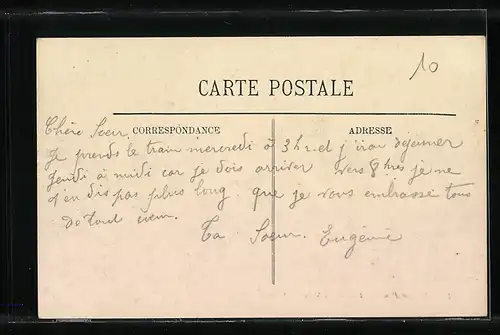 10
CARTE POSTALE
CORRESPONDANCE
ADRESSE
Chère Soeur
Je prends le train mercredi à 3 h. et j'irai déjeuner
Jeudi à midi car je dois arriver vers 8 hres je ne
t'en dis pas plus long que je vous embrasse tous
de tout coeur.
Ta Soeur. Eugénie